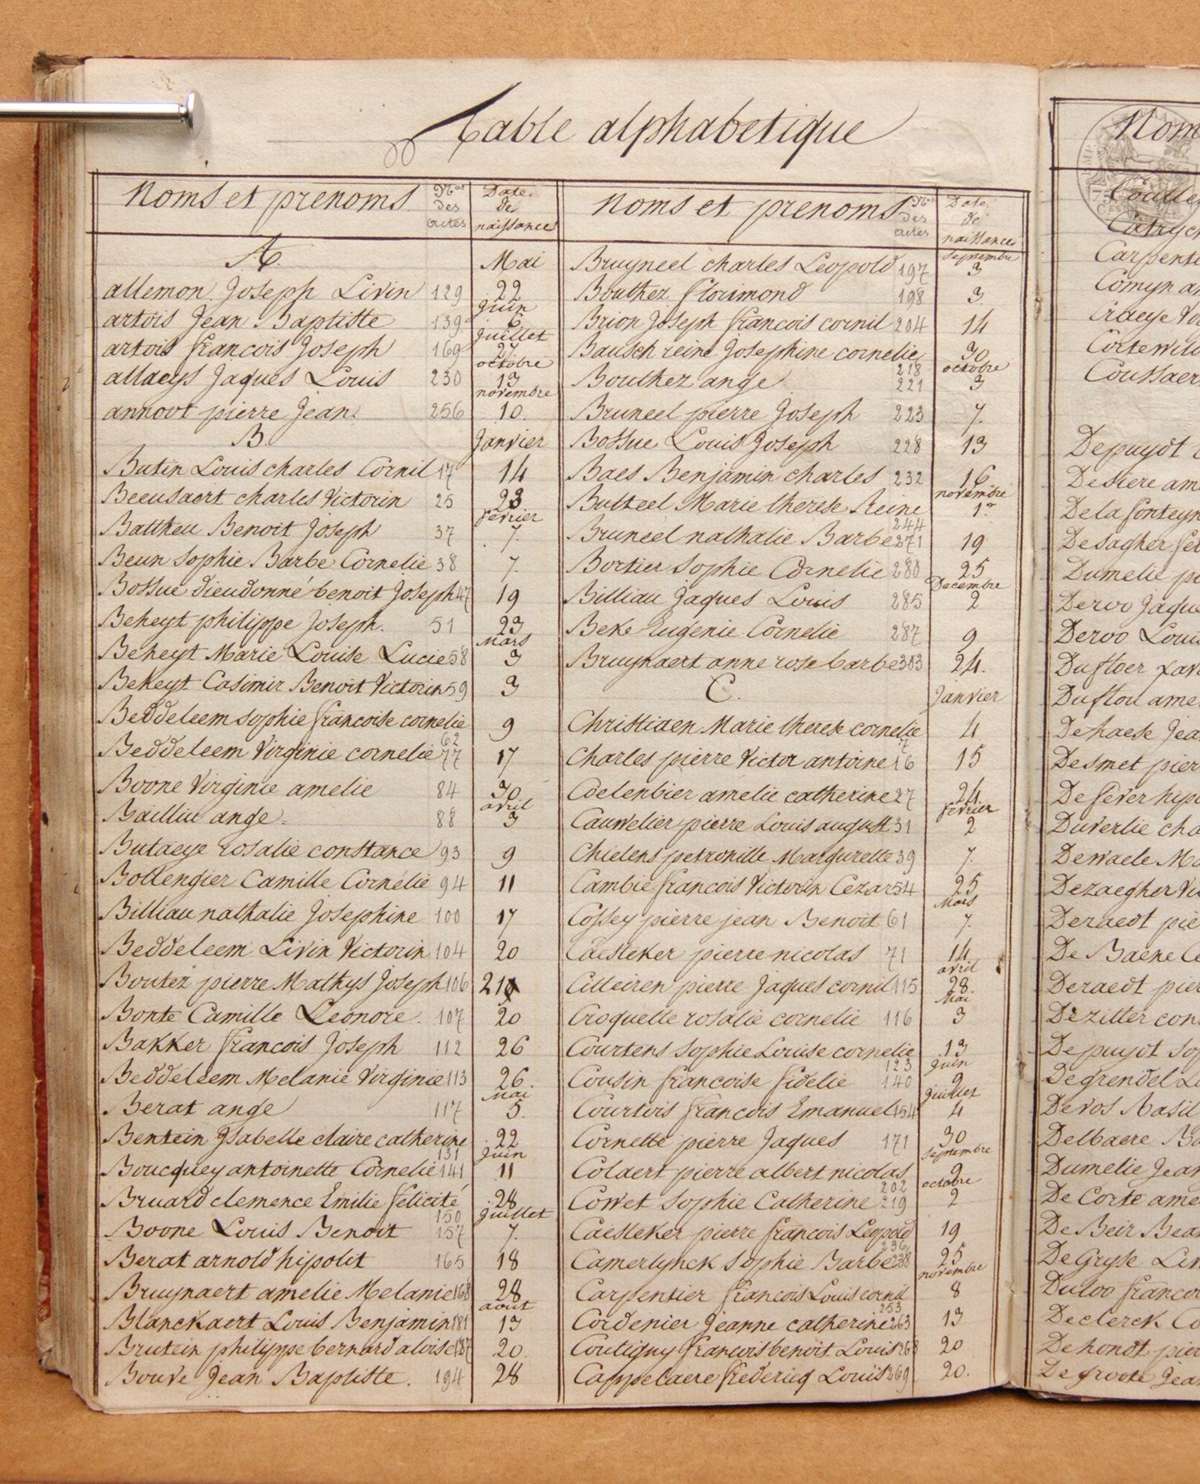 Table alphabetique
Noms et prenoms Nos des actes Date de naissance
A Mai
allemon Joseph Livin 129 22
Juin
artois Jean Baptiste 139 6
Juillet
artois francois Joseph 169 27
octobre
allaeys Jaques Louis 230 13
novembre
annoot pierre Jean 256 10
B Janvier
Butin Louis charles Cornil 17 14
Beeusaert charles Victorin 25 23
fevrier
Battheu Benoit Joseph 37 7
Beun Sophie Barbe Cornelie 38 7
Bossue dieudonné benoit Joseph 47 19
Beheyt philippe Joseph 51 23
Mars
Beheyt Marie Louise Lucie 58 3
Bekeyt Casimir Benoit Victorin 59 3
Beddeleem sophie francoise cornelie 62 9
Beddeleem Virginie cornelie 77 17
Boone Virginie amelie 84 30
avril
Bailliu ange 88 3
Butaeye rosalie constance 93 9
Bollengier Camille Cornélie 94 11
Billiau nathalie Josephine 100 17
Beddeleem Livin Victorin 104 20
Boutez pierre Mathys Joseph 106 21
Bonte Camille Leonore 107 20
Bakker francois Joseph 112 26
Beddeleem Melanie Virginie 113 26
Mai
Berat ange 117 5
Bentein Isabelle claire catherine 131 22
Juin
Boucquey antoinette Cornelie 141 11
Bruard clemence Emilie félicité 150 28
Juillet
Boone Louis Benoit 157 7
Berat arnold hipolit 165 18
Bruynaert amelie Melanie 168 28
aout
Blanckaert Louis Benjamin 181 13
Brutein philippe bernard aloise 187 20
Bouve Jean Baptiste 194 28
Noms et prenoms Nos des actes Date de naissance
septembre
Bruyneel charles Leopold 197 3
Bouthez florimond 198 3
Brion Joseph francois cornil 204 14
Bausch reine Josephine cornelie 218 30
octobre
Bouthez ange 221 3
Bruneel pierre Joseph 223 7
Bossue Louis Joseph 228 13
Baes Benjamin charles 232 16
novembre
Bulteel Marie therese Reine 244 1er
Bruneel nathalie Barbe 271 19
Bortier Sophie Cornelie 280 25
Decembre
Billiau Jaques Louis 285 2
Beke Eugenie Cornelie 287 9
Bruynaert anne rose barbe 303 24
C Janvier
Christiaen Marie therese cornelie 7 4
Charles pierre Victor antoine 16 15
Coelenbier amelie catherine 27 24
fevrier
Cauwelier pierre Louis august 31 2
Chielens petronille Margurette 39 7
Cambie francois Victorin Cezar 54 25
Mars
Cossey pierre jean Benoit 61 7
Caesteker pierre nicolas 71 14
avril
Cilleiren pierre Jaques cornil 115 28
Mai
Croquette rosalie cornelie 116 3
Courtens Sophie Louise cornelie 123 13
Juin
Cousin francoise fidelie 140 9
Juillet
Courtois francois Emanuel 154 4
Cornette pierre Jaques 171 30
septembre
Colaert pierre albert nicolas 202 9
octobre
Cowet Sophie Catherine 219 2
Caesteker pierre francois Leopold 236 19
Camerlynck Sophie Barbe 238 25
novembre
Carpentier francois Louis cornil 253 8
Cordenier Jeanne catherine 263 13
Couligny francois benoit Louis 268 20
Cappelaere frédericq Louis 269 20
Nom
Carpenti
Comyn an
Cortewil
Coussaer
Depuydt
Destere am
Dela fonteyn
Desagher fe
Dumelie pi
Deroo Jaque
Deroo Loui
Dufloer xav
Duflou ame
Dehaese Jea
Desmet pier
De fever hip
Duverlie cha
Dewaele Ma
Dezaegher Vi
Deraedt pie
De Baene Ce
Deraedt pier
Dezitter con
Depuydt sop
Degrendel L
Devos Basil
Delbaere Ba
Dumelie Jean
De Corte ame
De Beir Bear
De Gryse Lin
Duloo franco
Declerck Co
Dehondt pier
De groote Jea